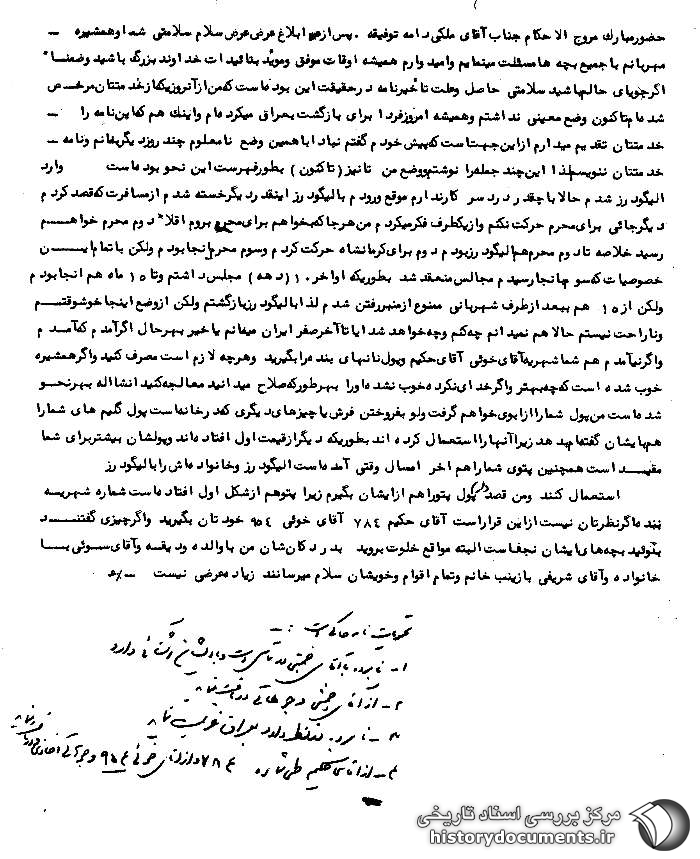 حضورمبارك مروج الاحكام جناب آقای ملکی دامه توفیقه . پس از ابلاغ عرض عرض سلام سلامتی شما وهمشیره -
مهربانم با جمیع بچه ها مسئلت مینمایم وامید وارم همیشه اوقات موفق وموید بتائیدات خداوند بزرگ باشید وضمنا"
اگرجویای حالم باشید سلامتی حاصل وعلت تأخیرنامه درحقیقت این بوده است که من ازآنروزیکه ازخدمتتان مرخص
شده ام تاکنون وضع معینی نداشتم وهمیشه امروزفردا برای بازگشت بعراق میکرده ام واینك هم که این نامه را -
خدمتتان تقدیم میدارم ازاین جهت است که پیش خودم گفتم نیاد ابا همین وضع نامعلوم چند روزدیگربمانم ونامه -
خدمتتان ننویسم لذا این چند جمله را نوشتم ووضع من تانیز ( تاکنون ) بطورفهرست این نحو بوده است وارد
الیگودرز شدم حالا با چقدر دردسر کارندارم موقع ورودم بالیگودرز اینقدر دیگرخسته شدم ازمسافرت که قصد کردم
دیگرجائی برای محرم حرکت نکنم وازیکطرف فکرمیکردم من هرجا که بخواهم برای محرم بروم اقلا" دوم محرم خواهم
رسید خلاصه تا دوم محرم هم الیگودرز بودم دوم برای کرمانشاه حرکت کردم وسوم محرم آنجا بودم ولکن با تمام ایـن
خصوصیات که سوم آنجا رسیدم مجالس منعقد شد بطوریکه اواخر ۱۰ ( دهه ) مجلس داشتم وتا ۱۵ ماه هم آنجا بودم
ولکن از ۱۵ هم ببعد ازطرف شهربانی ممنوع ازمنبررفتن شدم لذا بالیگودرز بازگشتم ولکن ازوضع اینجا خوشوقتـم
وناراحت نیستم حالا هم نمیدانم چه کم وچه خواهد شد ایا تا آخرصفر ایران میمانم یا خیر بهرحال اگرآمدم که آمدم
واگرنیآمدم هم شما شهریه آقای خوئی آقای حکیم وپول نانهای بنده را بگیرید وهرچه لازم است مصرف کنید واگرهمشیره
خوب شده است که چه بهتر واگرخدای نکرده خوب نشده اورا بهرطورکه صلاح میدانید معالجه کنید انشااله بهرنحـو
شده است من پول شما را ازابوی خواهم گرفت ولو بفروختن فرش یا چیزهای دیگری که درخانه است پول گلیم های شما را
هم بایشان گفته ام بدهد زیرا آنها را استعمال کرده اند بطوریکه دیگر ازقیمت اول افتاده اند وپولشان بیشتربرای شما
مفیـد است همچنین پتوی شما را هم اخر امسال وقتی آمده است الیگودرز وخانواده اش را بالیگودرز
استعمال کنند ومن قصد دارم پول پتورا هم ازایشان بگیرم زیرا پتوهم ازشکل اول افتاده است شماره شهریـه
بنده اگرنظرتان نیست ازاین قراراست آقای حکیم ۷۸۴ آقای خوئی ۹۵۴ خودتان بگیرید واگرچیزی گفتنـد
بگوئید بچه های ایشان نجف است البته مواقع خلوت بروید پدر دکان شان من با والده ودیقه وآقای سبوئی بـا
خانواده وآقای شریفی با زینب خانم وتمام اقوام وخویشان سلام میرسانند زیاده عرضی نیست -
۱- نامبرده با آقای خمینی در تماس است و با ایشان آشنائی دارد
۲- از آقای خمینی وجوهاتی دریافت مینماید
۳- نامبرده در نظر دارد بعراق عزیمت نماید
۴- از آقای حکیم طی شماره ۷۸۴ و از آقای خوئی ۹۵۴ وجوهاتی
مرکز بررسی اسناد تاریخی
historydocuments.ir